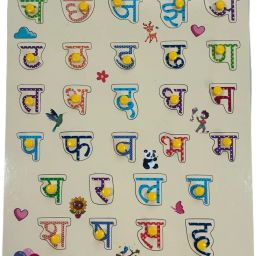 च छ ज झ ञ
ट ठ ड ढ ण
त थ द ध न
प फ ब भ म
य र ल व
श ष स ह